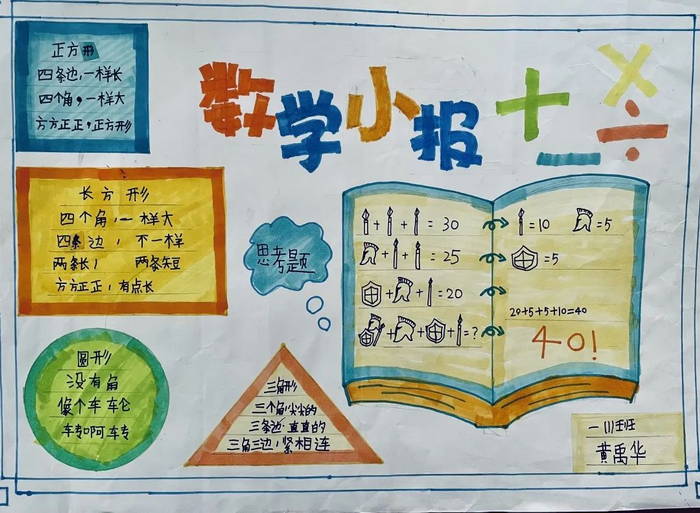 数学小报
+
-
×
÷
正方形
四条边,一样长
四个角,一样大
方方正正,正方形
长方形
四个角,一样大
四条边,不一样
两条长,两条短
方方正正,有点长
思考题
+ + = 30
+ + = 25
+ + = 20
+ + + = ?
=10 =5
=5
20+5+5+10=40
40!
圆形
没有角
像个车车轮
车专啊车专
三角形
三个角,尖尖的
三条边,直直的
三角三边,紧相连
黄禹华